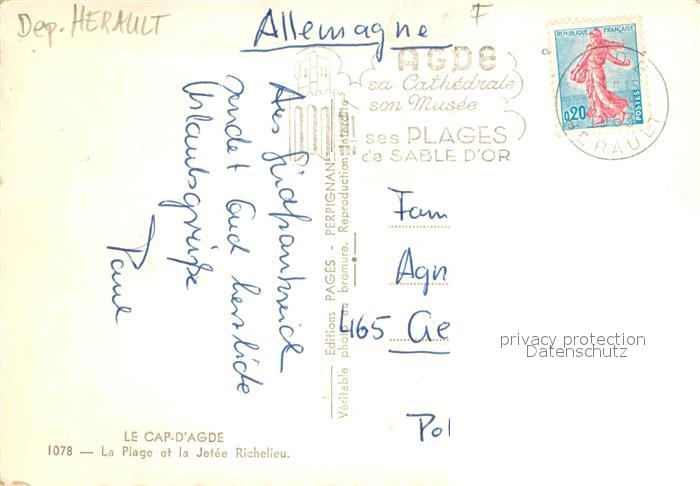 Dep. HERAULT
Allemagne
F
AGDE
sa Cathédrale
son Musée
ses PLAGES
de SABLE D'OR
REPUBLIQUE FRANÇAISE
0,20
POSTES
HERAULT
Aus Südfrankreich
sendet Euch herzliche
Urlaubsgrüße
Paul
Editions PAGÈS - PERPIGNAN
Véritable photo au bromure. Reproduction interdite
Fam
Agn
465 Ge
Pol
privacy protection
Datenschutz
LE CAP-D'AGDE
1078 — La Plage et la Jetée Richelieu.